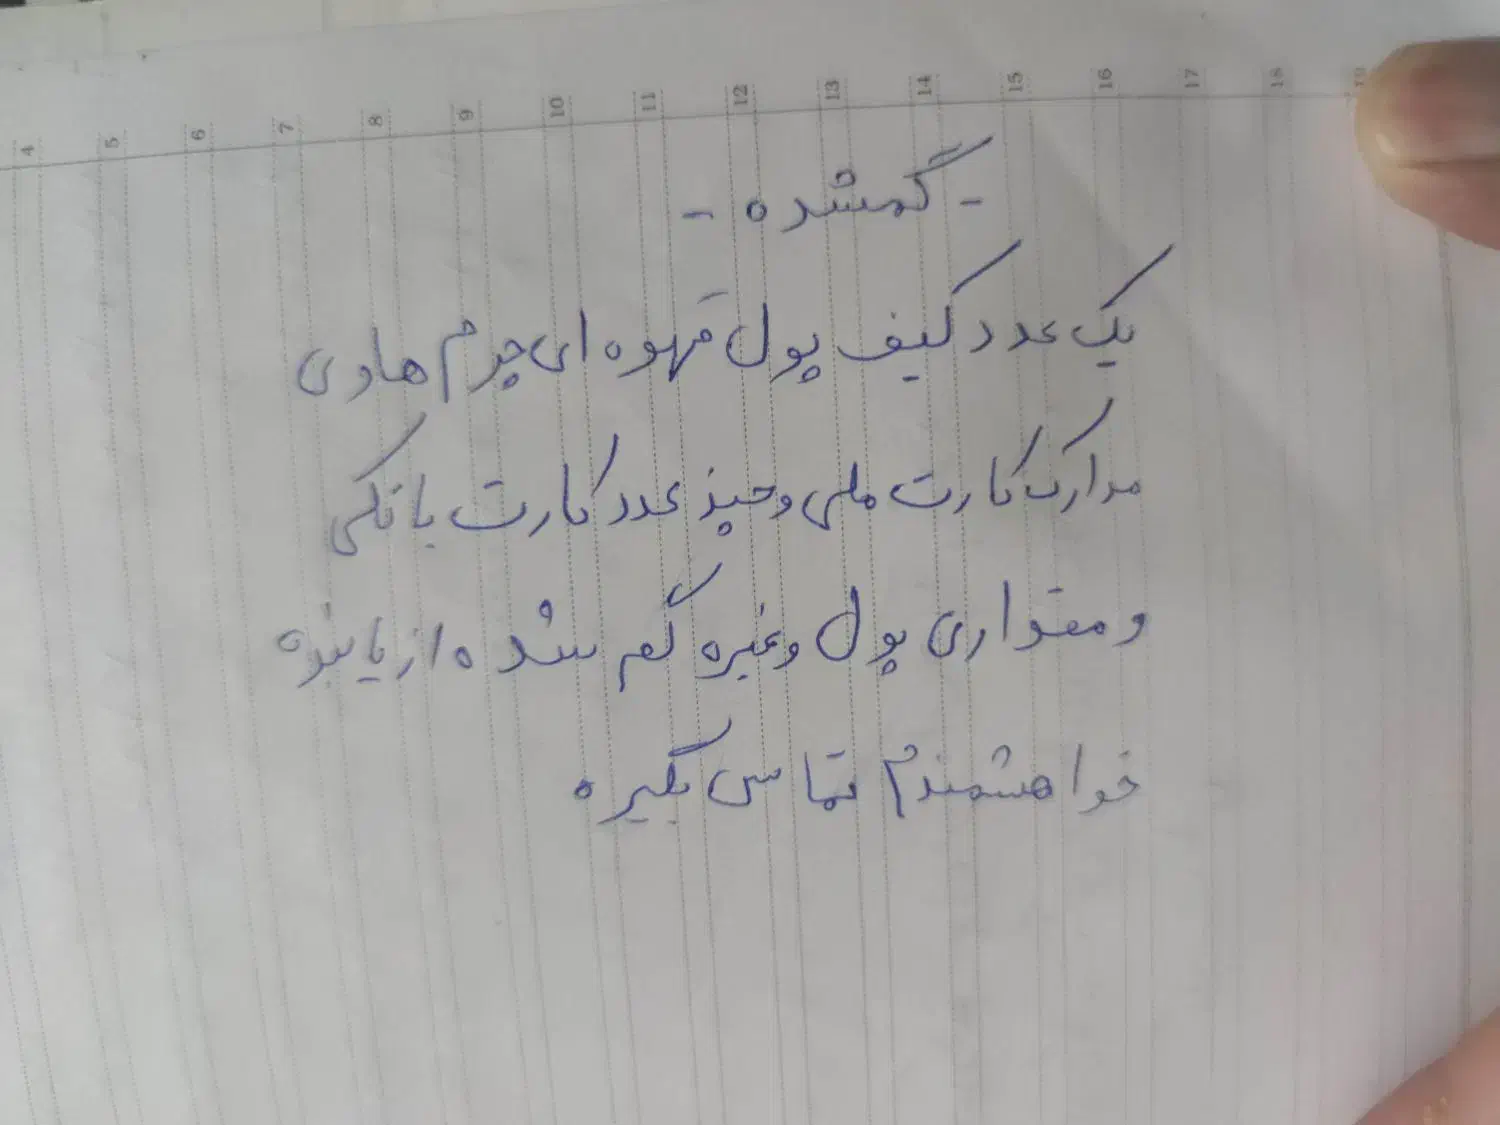 4 5 6 7 8 9 10 11 12 13 14 15 16 17 18 19
- گمشده -
یک عدد کیف پول قهوه ای چرم هاوی
مدارک کارت ملی و چند عدد کارت بانکی
و مقداری پول و غیره گم شده از یابنده
خواهشمندم تماس بگیره